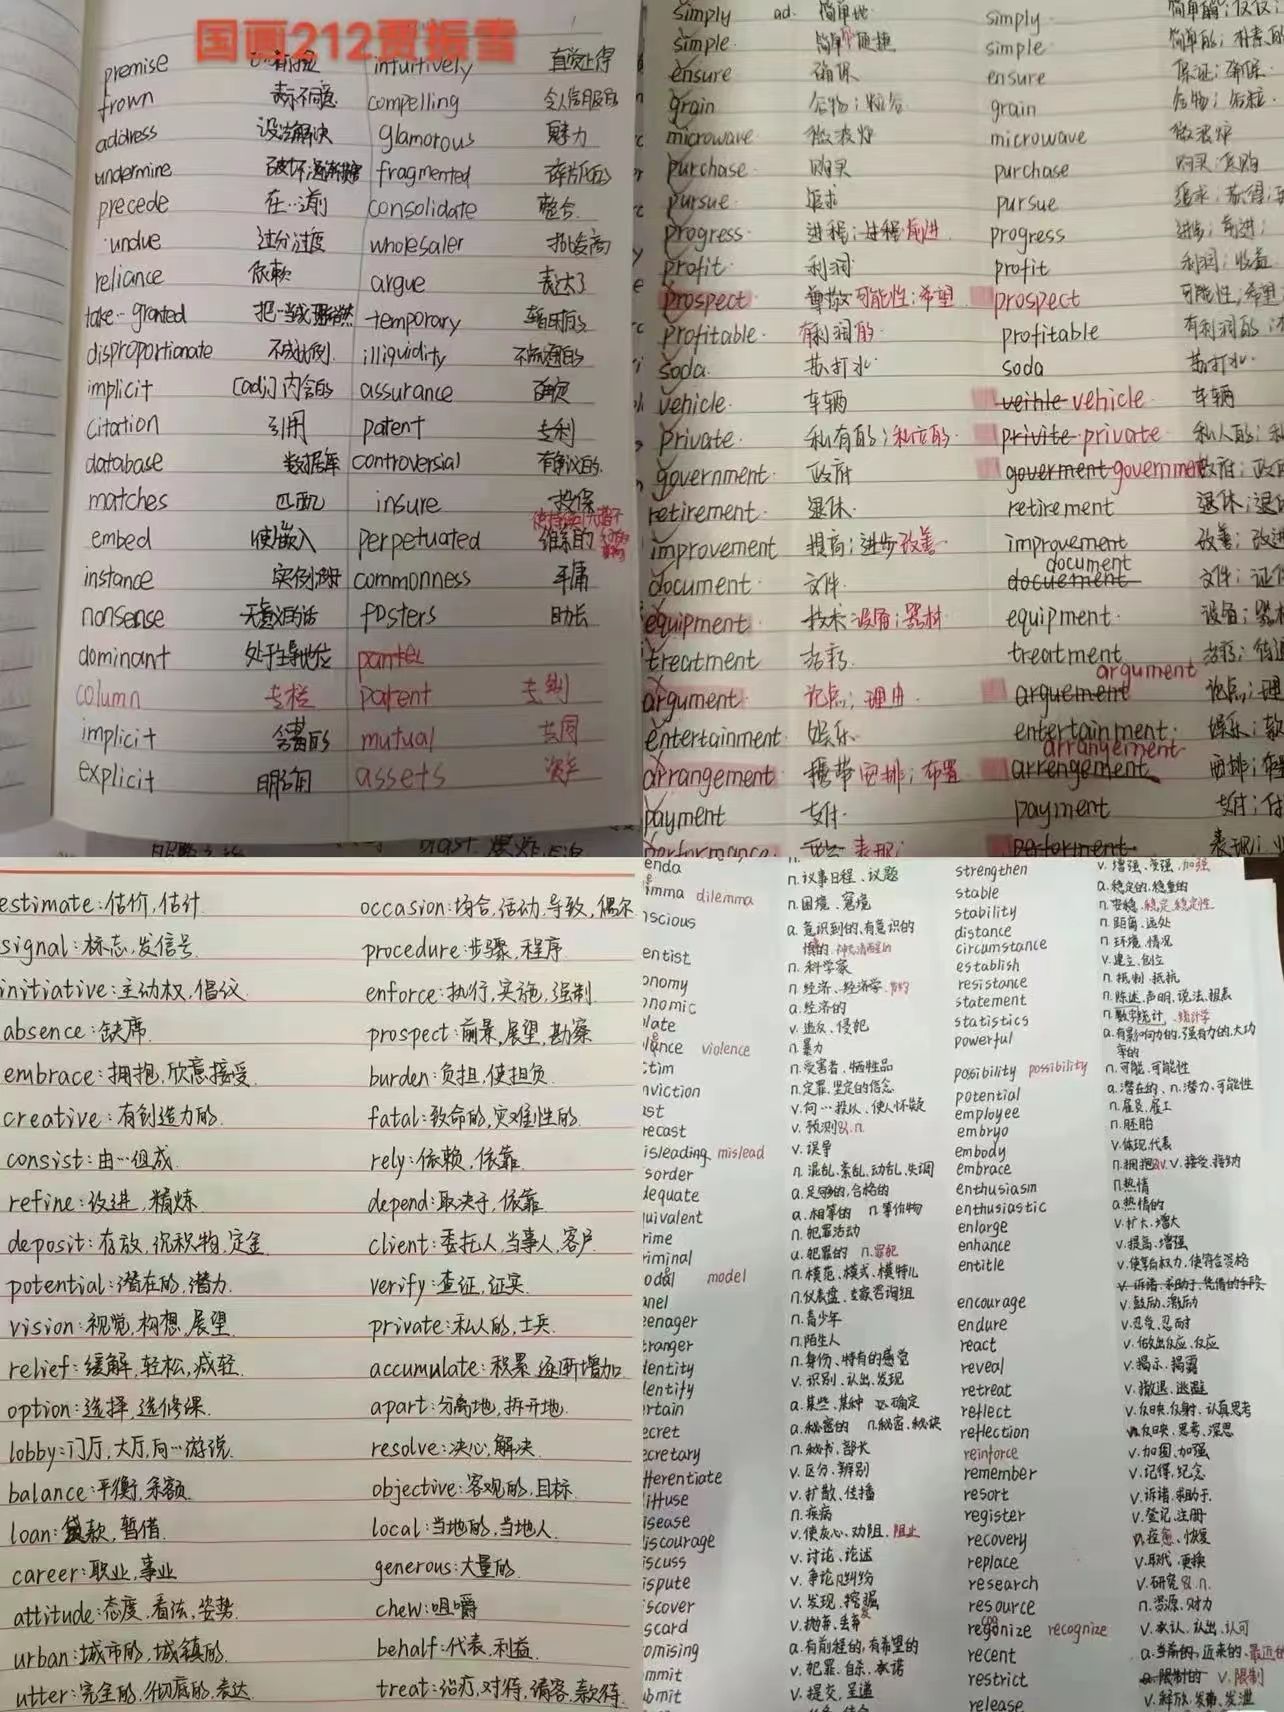 国画212贾振雪
premise 前提 intuitively 直觉上得
frown 表示不同意 compelling 令人信服的
address 设法解决 glamorous 魅力
undermine 破坏 fragmented 碎片的
precede 在…之前 consolidate 整合
undue 过分过度 wholesaler 批发商
reliance 依赖 argue 表达了
take…granted temporary 暂时的
disproportionate 不成比例 illiquidity 不流通的
implicit [adj]内含的 assurance 确定
citation 引用 patent 专利
database 数据库 controversial 有争议的
matches 匹配 insure 投保
embed 使嵌入 perpetuated 维系的
instance 实例 commonness 平庸
nonsense 无意义的话 fosters 助长
dominant 处于主导地位
column 专栏 patent 专利
implicit 含蓄的 mutual 共同
explicit 明确 assets 资产
simply ad. 简单地 simply
simple 简单 便捷 simple
ensure 确保 ensure 保证；确保
grain 谷物；粒谷 grain 谷物；谷粒
microwave 微波炉 microwave 微波炉
purchase 购买 purchase 购买；采购
pursue 追求 pursue 追求；获得；
progress 进程；进程 前进 progress 进步；前进；
profit 利润 profit 利润；收益
prospect 尊敬 可能性；希望 prospect 可能性，希望
profitable 有利润的 profitable 有利润的；
soda 苏打水 soda 苏打水
vehicle 车辆 veihle vehicle 车辆
private 私有的；私立的 privite private 私人的；私
government 政府 goverment government 政府；政府
retirement 退休 retirement 退休；退
improvement 提高；进步 改善 improvement 改善；改进
document 文件 docuement document 文件；证件
equipment 技术 设备；器材 equipment 设备；器材
treatment 治疗 treatment 治疗；
argument 论点；理由 arguement argument 论点；理
entertainment 娱乐 entertainment 娱乐；款
arrangement 携带 安排；布置 arrengement arrangement 安排；布
payment 支付 payment 支付；付
performance 表现； performent 表现；
estimate：估价，估计 occasion：场合，活动，导致，偶尔
signal：标志，发信号 procedure：步骤，程序
initiative：主动权，倡议 enforce：执行，实施，强制
absence：缺席 prospect：前景，展望，勘察
embrace：拥抱，欣意接受 burden：负担，使担负
creative：有创造力的 fatal：致命的，灾难性的
consist：由…组成 rely：依赖，依靠
refine：改进，精炼 depend：取决于，依靠
deposit：存放，沉积物，定金 client：委托人，当事人，客户
potential：潜在的，潜力 verify：查证，证实
vision：视觉，构想，展望 private：私人的，士兵
relief：缓解，轻松，减轻 accumulate：积累，逐渐增加
option：选择，选修课 apart：分离地，拆开地
lobby：门厅，大厅，向…游说 resolve：决心，解决
balance：平衡，余额 objective：客观的，目标
loan：贷款，暂借 local：当地的，当地人
career：职业，事业 generous：大量的
attitude：态度，看法，姿势 chew：咀嚼
urban：城市的，城镇的 behalf：代表，利益
utter：完全的，彻底的，表达 treat：治疗，对待，请客，款待
enda n.议事日程、议题 strengthen v.增强、变强、加强
imma dilemma n.困境、窘境 stable a.稳定的，稳重的
nscious a.意识到的，有意识的 stability n.安稳、稳定，稳定性
distance n.距离、远处
entist n.科学家 circumstance n.环境、情况
onomy n.经济、经济学、节约 establish v.建立、创立
onomic a.经济的 resistance n.抵制、抵抗
late v.违反、侵犯 statement n.陈述、声明、说法、报表
lance violence n.暴力 statistics n.数字统计、统计学
ctim n.受害者、牺牲品 powerful a.有影响力的，强有力的，大功率的
nviction n.定罪、坚定的信念 posibility possibility n.可能、可能性
ast v.向…投以、使人怀疑 potential a.潜在的、n.潜力、可能性
recast v.预测&n. employee n.雇员、雇工
isleading mislead v.误导 embryo n.胚胎
sorder n.混乱、紊乱、动乱、失调 embody v.体现、代表
dequate a.足够的、合格的 embrace n.拥抱&v. v.接受、接纳
uivalent a.相等的 n.等价物 enthusiasm n.热情
rime n.犯罪活动 enthusiastic a.热情的
riminal a.犯罪的 n.罪犯 enlarge v.扩大、增大
odel model n.模范、模式、模特儿 enhance v.提高、增强
anel n.仪表盘、专家咨询组 entitle v.使有权力、使符合资格
v.诉诸、求助于、凭借的手段
eenager n.青少年 encourage v.鼓励、激励
tranger n.陌生人 endure v.忍受、忍耐
dentity n.身份、特有的感觉 react v.做出反应、反应
dentify v.识别、认出、发现 reveal v.揭示、揭露
rtain a.某些、某种 确定 retreat v.撤退、逃避
ecret a.秘密的 n.秘密、秘诀 reflect v.反映、反射、认真思考
ecretary n.秘书、部长 reflection n.反映、思考、深思
fferentiate v.区分、辨别 reinforce v.加固、加强
iffuse v.扩散、传播 remember v.记得、纪念
isease n.疾病 resort v.诉诸、求助于
iscourage v.使灰心、劝阻、阻止 register v.登记、注册
iscuss v.讨论、论述 recovery n.痊愈、恢复
ispute v.争论&纠纷 replace v.取代、更换
iscover v.发现、挖掘 research v.研究&n.
scard v.抛弃、丢弃 resource n.资源、财力
omising a.有前程的，有希望的 regonize recognize v.承认、认出、认可
mmit v.犯罪、自杀、承诺 recent a.当前的，近来的、最近的
bmit v.提交、呈递 restrict a.限制的 v.限制
release v.释放、发布、发泄